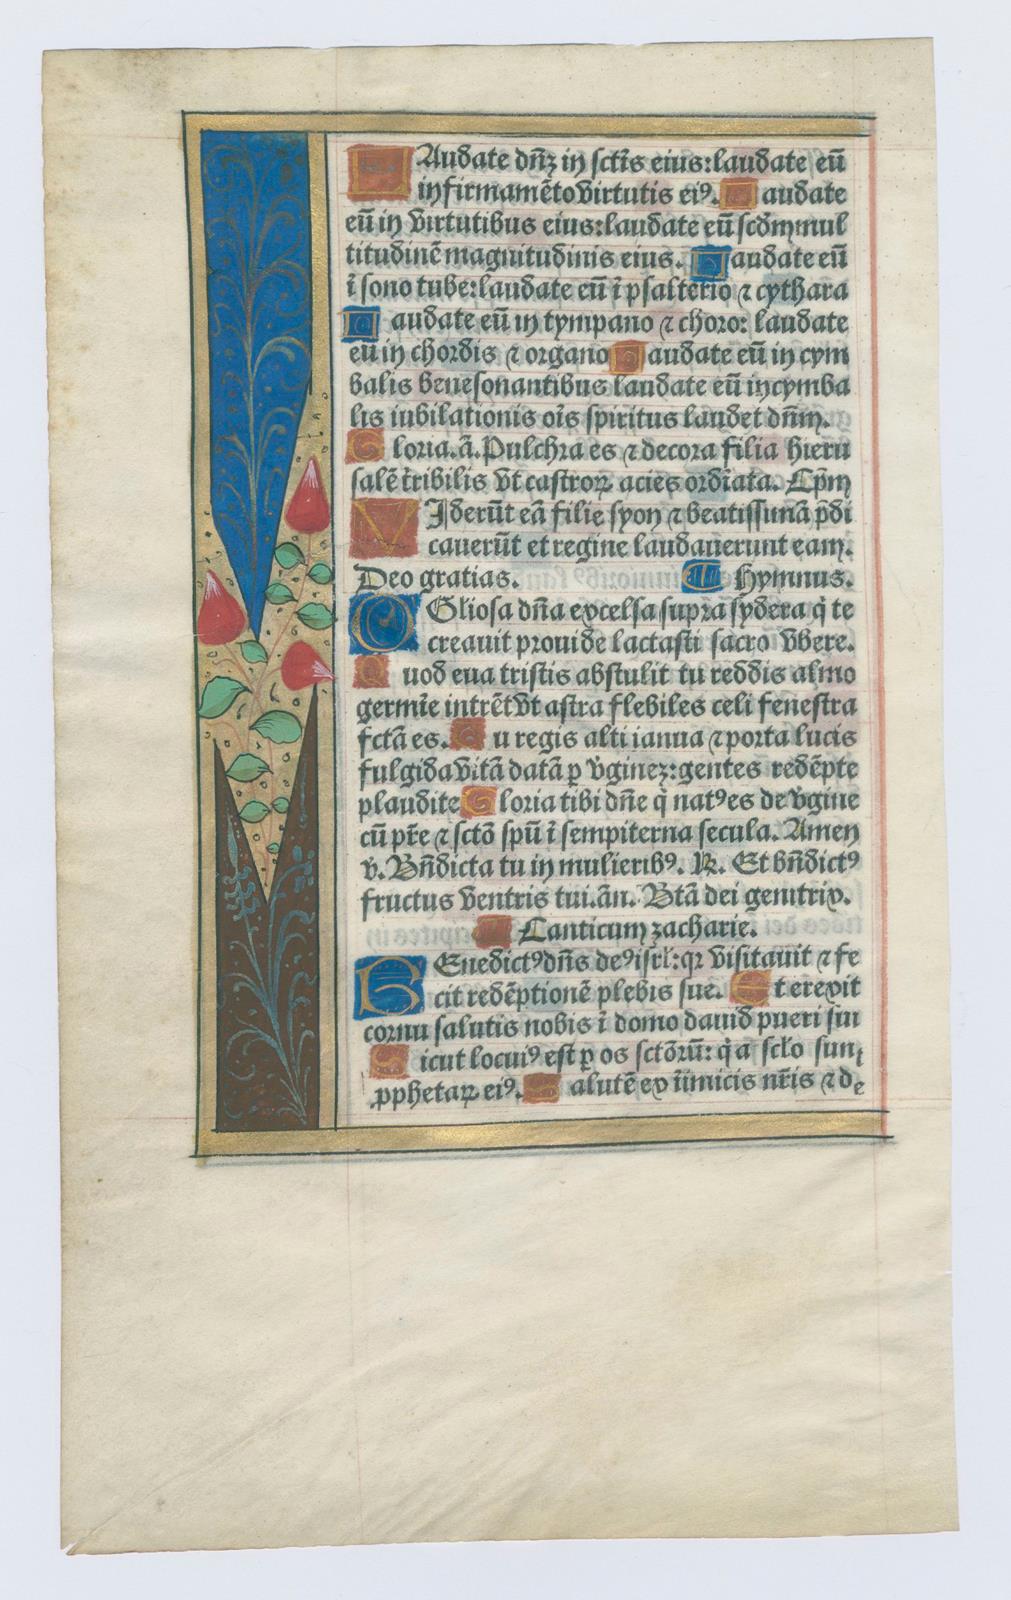 LAudate dn̄ꝫ in sctīs eius: laudate eū
in firmamēto virtutis eiꝰ. Laudate
eū in virtutibus eius: laudate eū scd̄m mul
titudinē magnitudinis eius. Laudate eū
ī sono tube: laudate eū ī psalterio ⁊ cythara
Laudate eū in tympano ⁊ choro: laudate
eū in chordis ⁊ organo Laudate eū in cym
balis benesonantibus laudate eū in cymba
lis iubilationis oīs spiritus laudet dn̄m.
Gloria. ā. Pulchra es ⁊ decora filia hieru
salē tribilis vt castroꝝ acies ordīata. Cp̄m
VIderūt eā filie syon ⁊ beatissimā p̄di
cauerūt et regine laudauerunt eam.
Deo gratias. ¶ Hymnus.
OGliosa dn̄a excelsa supra sydera q̄ te
creauit prouide lactasti sacro vbere.
Quod eua tristis abstulit tu reddis almo
germīe intrēt vt astra flebiles celi fenestra
fctā es. Tu regis alti ianua ⁊ porta lucis
fulgida vitā datā ꝑ v̄gineꝫ: gentes redēpte
plaudite Gloria tibi dn̄e q̄ natꝰ es de v̄gine
cū pr̄e ⁊ sctō spū ī sempiterna secula. Amen
v. Bn̄dicta tu in mulieribꝰ. ℟. Et bn̄dictꝰ
fructus ventris tui. ān. Btā dei genitrix.
Canticum zacharie.
BEnedictꝰ dn̄s deꝰ isrl̄: qꝛ visitauit ⁊ fe
cit redēptionē plebis sue. Et erexit
cornu salutis nobis ī domo dauid pueri sui
Sicut locutꝰ est ꝑ os sctōrū: q̄ a sclo sunt
ꝓphetaꝝ eiꝰ. Salutē ex īimicis nr̄is ⁊ de